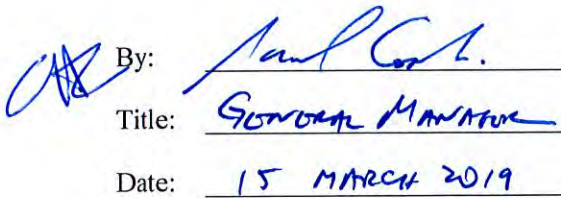 By:
Title: GENERAL MANAGER
Date: 15 MARCH 2019